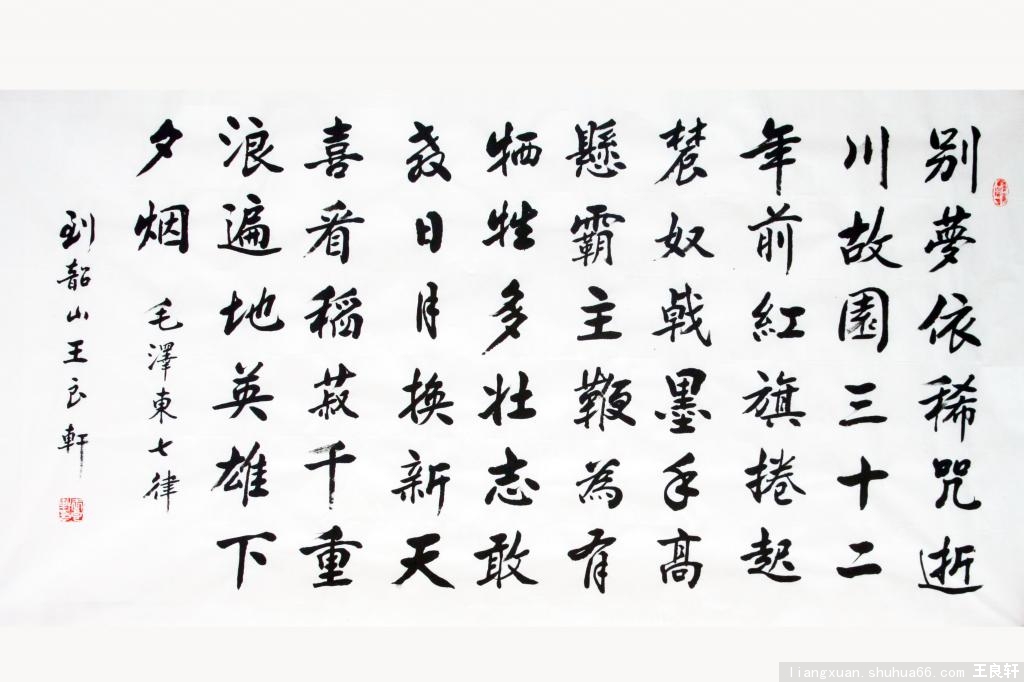 别夢依稀咒逝
川故園三十二
年前紅旗捲起
農奴戟墨手高
懸霸主鞭為有
牺牲多壮志敢
教日月換新天
喜看稻菽千重
浪遍地英雄下
夕烟 毛澤東七律
到韶山王良軒
liangxuan.shuhua66.com 王良轩